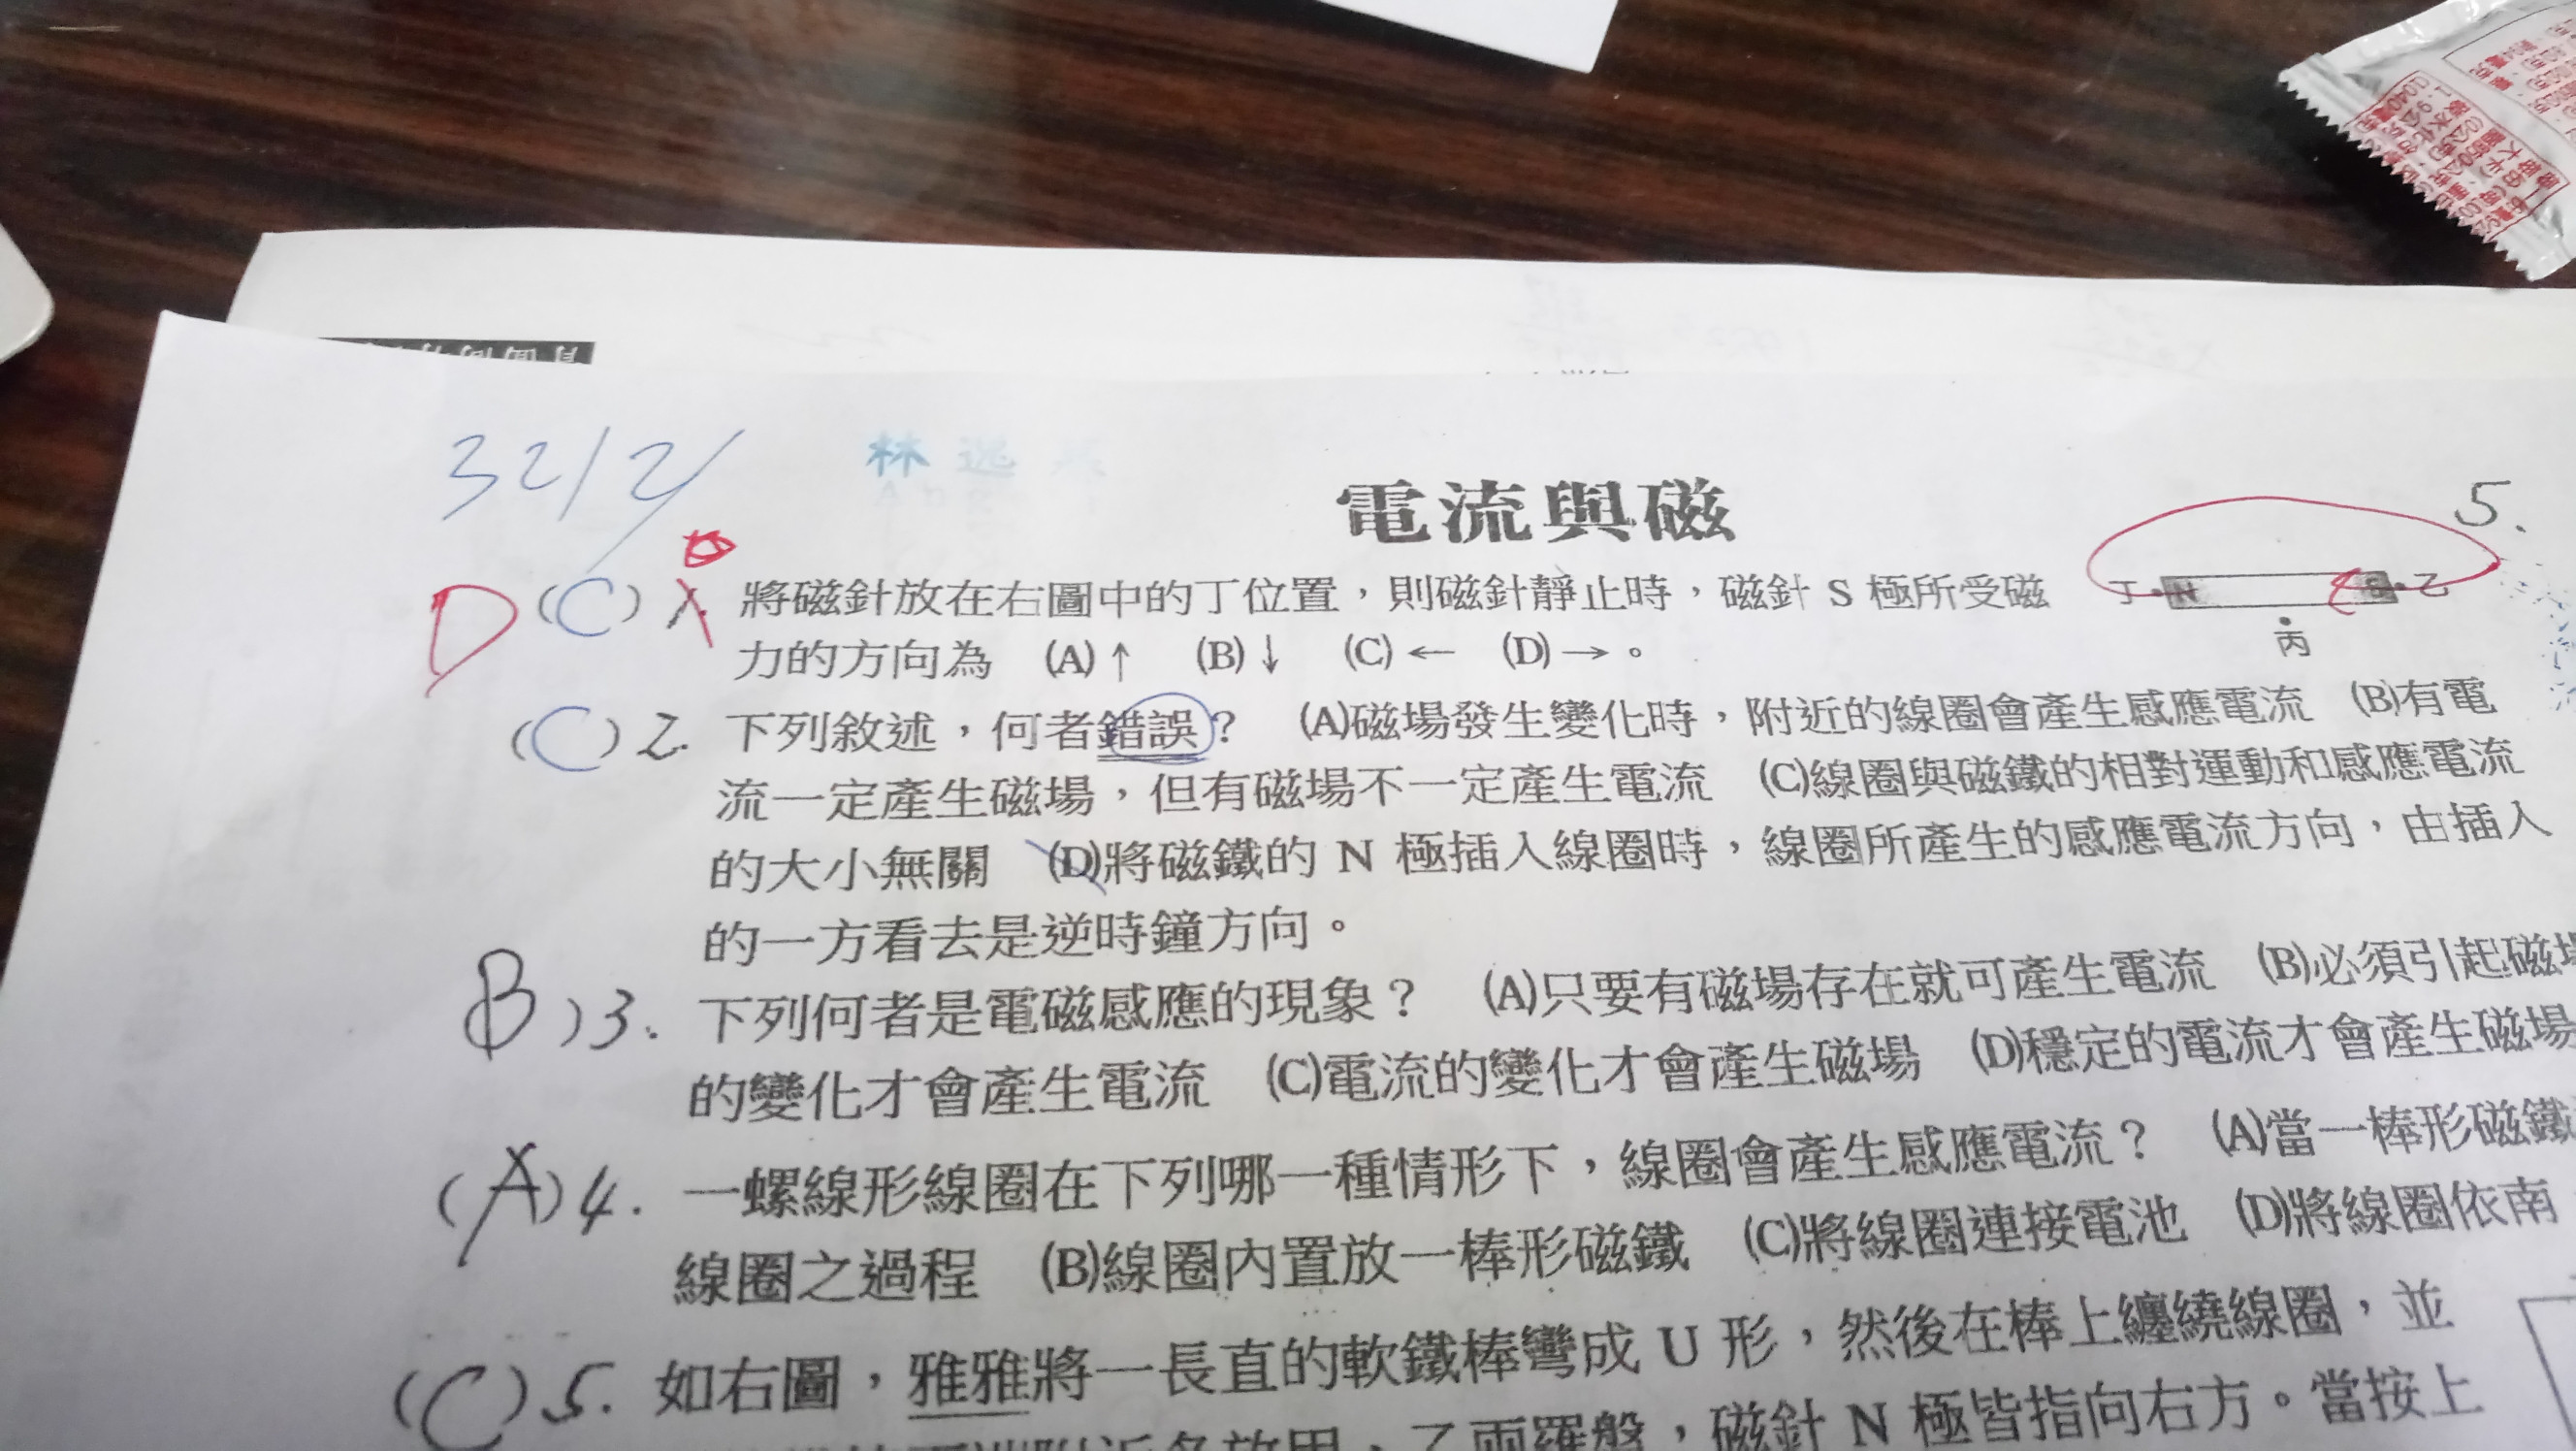 32/2
林逸
電流與磁
5.
D (C) 1. 將磁針放在右圖中的丁位置，則磁針靜止時，磁針 S 極所受磁
力的方向為 (A)↑ (B)↓ (C)← (D)→。
丁 N S 乙
丙
(C) 2. 下列敘述，何者錯誤？ (A)磁場發生變化時，附近的線圈會產生感應電流 (B)有電
流一定產生磁場，但有磁場不一定產生電流 (C)線圈與磁鐵的相對運動和感應電流
的大小無關 (D)將磁鐵的 N 極插入線圈時，線圈所產生的感應電流方向，由插入
的一方看去是逆時鐘方向。
B)3. 下列何者是電磁感應的現象？ (A)只要有磁場存在就可產生電流 (B)必須引起磁場
的變化才會產生電流 (C)電流的變化才會產生磁場 (D)穩定的電流才會產生磁場
(A)4. 一螺線形線圈在下列哪一種情形下，線圈會產生感應電流？ (A)當一棒形磁鐵
線圈之過程 (B)線圈內置放一棒形磁鐵 (C)將線圈連接電池 (D)將線圈依南
(C)5. 如右圖，雅雅將一長直的軟鐵棒彎成 U 形，然後在棒上纏繞線圈，並
兩羅盤，磁針 N 極皆指向右方。當按上